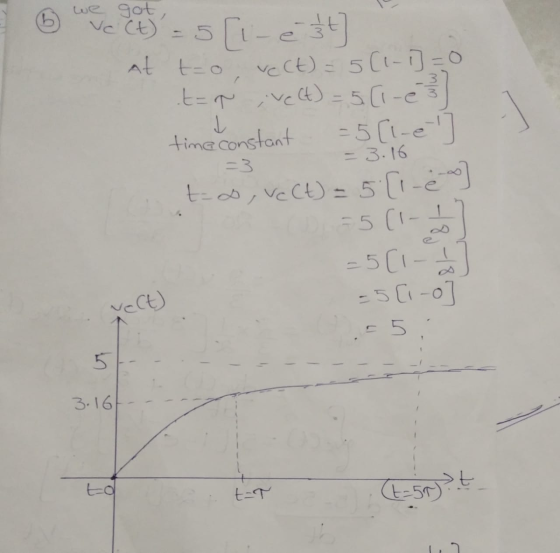 (b) we got,
vc(t) = 5 [1 - e^{-1/3 t}]
At t=0, vc(t) = 5[1-1] = 0
t = τ, vc(t) = 5[1-e^{-3/3}]
↓
= 5[1-e^{-1}]
time constant
= 3.16
= 3
t = ∞, vc(t) = 5 [1-e^{-∞}]
= 5 [1 - 1/e^∞]
= 5 [1 - 1/∞]
= 5 [1-0]
= 5
vc(t)
5
3.16
t=0
t=τ
(t=5τ)
t